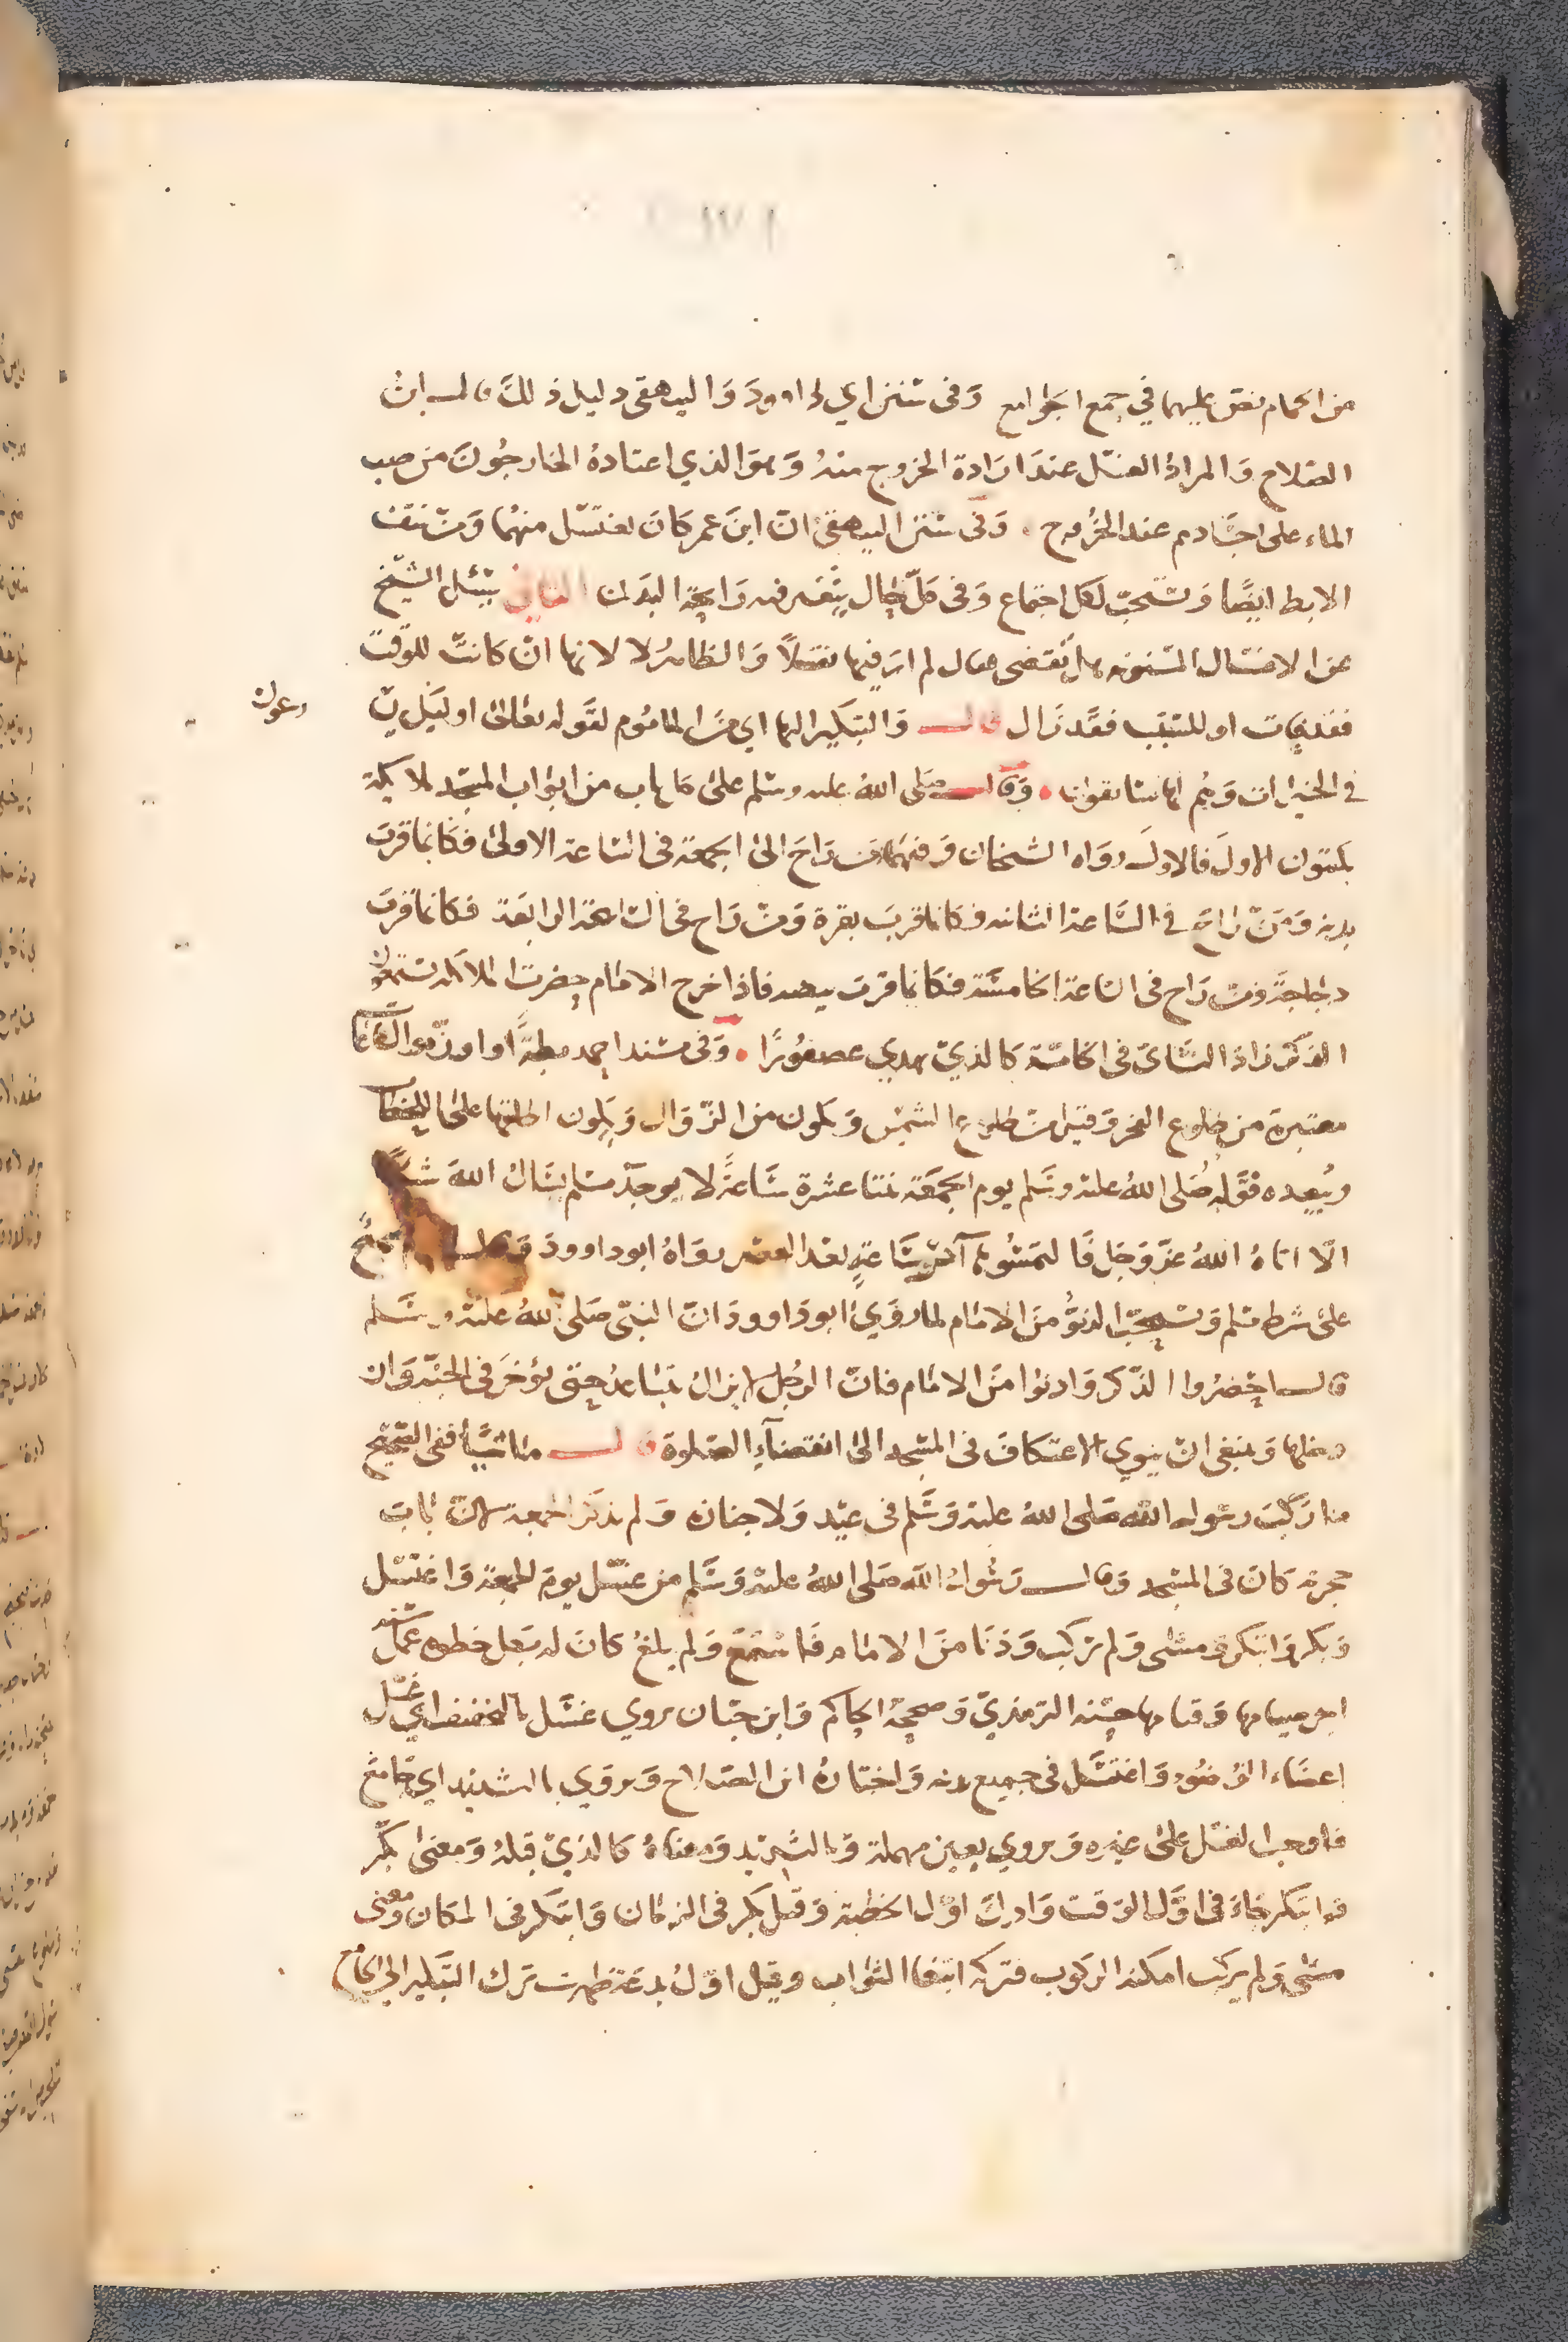 من الحمام نص عليهما في جمع الجوامع وَفى سنن ابي داوودَ وَالبيهقى دليل ذلكَ قال ابن
الصلاح وَالمرادُ الغسل عندَ ارَادة الخروج منهُ وَهوَ الذي اعتادهُ الخارجُونَ من صب
الماء على اجسَادهم عند الخرُوج . وَفى سنن البيهقىّ انّ ابنَ عمر كَانَ يغتسل منهُما وَمن نتف
الابط ايضًا وَتستحبّ لكل اجتماع وَفى كلّ حال يتغير فيه رَايحَة البدَن الثاني سئل الشيخ
عن الاغتسال المسنونه هل تقضى فقال لم ارَ فيها نقلًا وَالظاهرُ لا لانها انْ كانتْ للوَقت
فقد فات او للسّبب فقَد زَال قال وَالتبكير اليها اي منَ المامُوم لقوله تعالىٰ اوليَك
رعون
فى الخيرات وَهُم لها سَابقون . وَقال صَلى اللهُ عليه وسلم علىٰ كل باب من ابوَاب المسجد ملايكة
يكتبون الاولَ فالاولَ روَاه الشيخان وَفيهما من رَاحَ الىٰ الجمعَة فى السَاعة الاولىٰ فكَانما قربَ
بدنه وَمَنْ رَاحَ فى السَّاعة الثانيه فكَانما قربَ بقرة وَمن رَاح فى السَّاعة الرابعَة فكانما قربَ
دجاجَةً ومن رَاح فى السَاعة الخامسَة فكَانما قربَ بيضه فاذا خرج الامَام حضرت الملايكه يستمعُون
الذكر زاد النسَائ فى الخامسَة كَالذي يهدي عصفُورًا . وَفى مسند احمد بطةً او اوزّه والسَّاعات
معتبرة من طلوع الفجر وَقيل من طلوع الشمس وَيكون من الزوَال وَيكون اطلقها علىٰ اللحظات
ويُبعده قوله صَلى اللهُ عليه وسَلم يوم الجمعَة ثنتا عشرة سَاعةً لا يوجَد مسلم يسَال اللهَ شيئًا
الّا اتاهُ اللهُ عزّ وَجَل فَالتمسُوها آخر سَاعةٍ بعدَ العصر روَاهُ ابو داوودَ وَقال صحيحٌ
علىٰ شرط مسلم وَتستحبّ الدنوُّ منَ الامَام لما روَي ابو دَاوودَ انّ النبىّ صَلى اللهُ عَليْه وسَلم
قال احضرُوا الذكر وَادنوا منَ الامَام فانّ الرجُل لا يزالُ يتبَاعدُ حتى يؤخرَ فى الجنّة وَان
دخلها وَينبغي انْ ينوي الاعتكافَ فى المسْجد الىٰ انقضآءِ الصَلوة قال مَاشيًا ففى الصّحيح
مَا رَكبَ رسُول الله صَلى اللهُ عليْه وَسَّلم فى عيْد وَلا جنازه وَلم يذكَر الجمعة لانّ بابَ
حجرته كانَ فى المسْجد وَقال رَسُولُ الله صَلى اللهُ عليْه وَسَّلم من غسّل يومَ الجمعَة وَاغتسَل
وَبكر وَابتكر وَمشى وَلم يركب وَدنَا منَ الامَام فَاستمَعَ وَلم يلغُ كانَ له بكل خطوه عمَل سنه
اجر صيامها وَقيامها حسّنه الترمذيّ وَصححهُ الحاكم وَابن حبّان يروي غسَّل بالتخفيف اي غسل
اعضَاء الوُضوء وَاغتسَّل فى جميع بدنه وَاختارهُ ابن الصَلاح وَيروَي بالتشديد اي جَامعَ
فاوجب الغسْل علىٰ غيره وَيروي بعين مهملة وَبالتشديد وَمعناهُ كالذيْ قبلهُ وَمعنىٰ بكَّر
وَابتكر جَاءَ فى اوَّل الوَقت وَادركَ اوّل الخطبَة وَقيل بكر فى الزمَان وَابتكر فى المكَان وَمعنى
مشى وَلم يركب امكنه الركوب فتركه ابتغا الثوَاب وقيل اوّلُ بدعَة ظهرت ترك التبكير الى الجامع